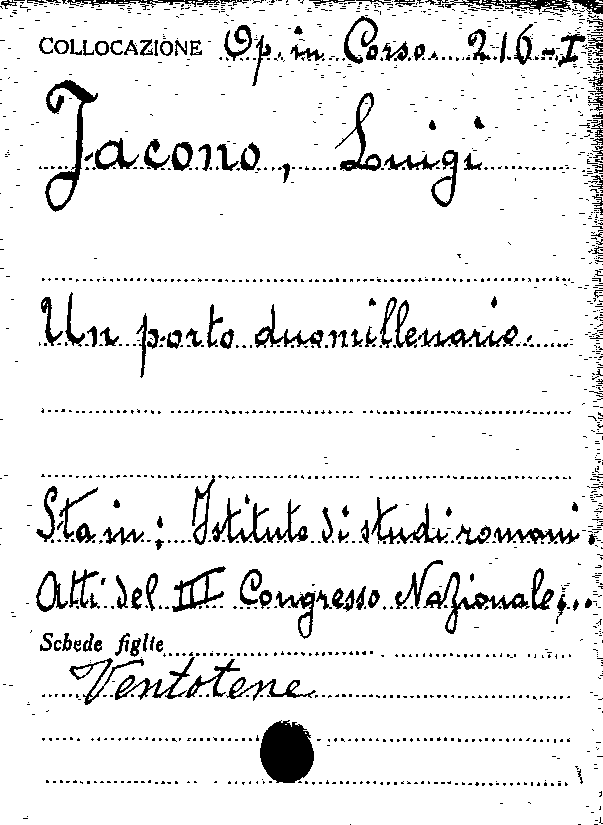 COLLOCAZIONE Op. in Corso. 216-I
Jacono, Luigi
Un porto duomillenario.
Sta in: Istituto di studi romani.
Atti del III Congresso Nazionale,..
Schede figlie
Ventotene